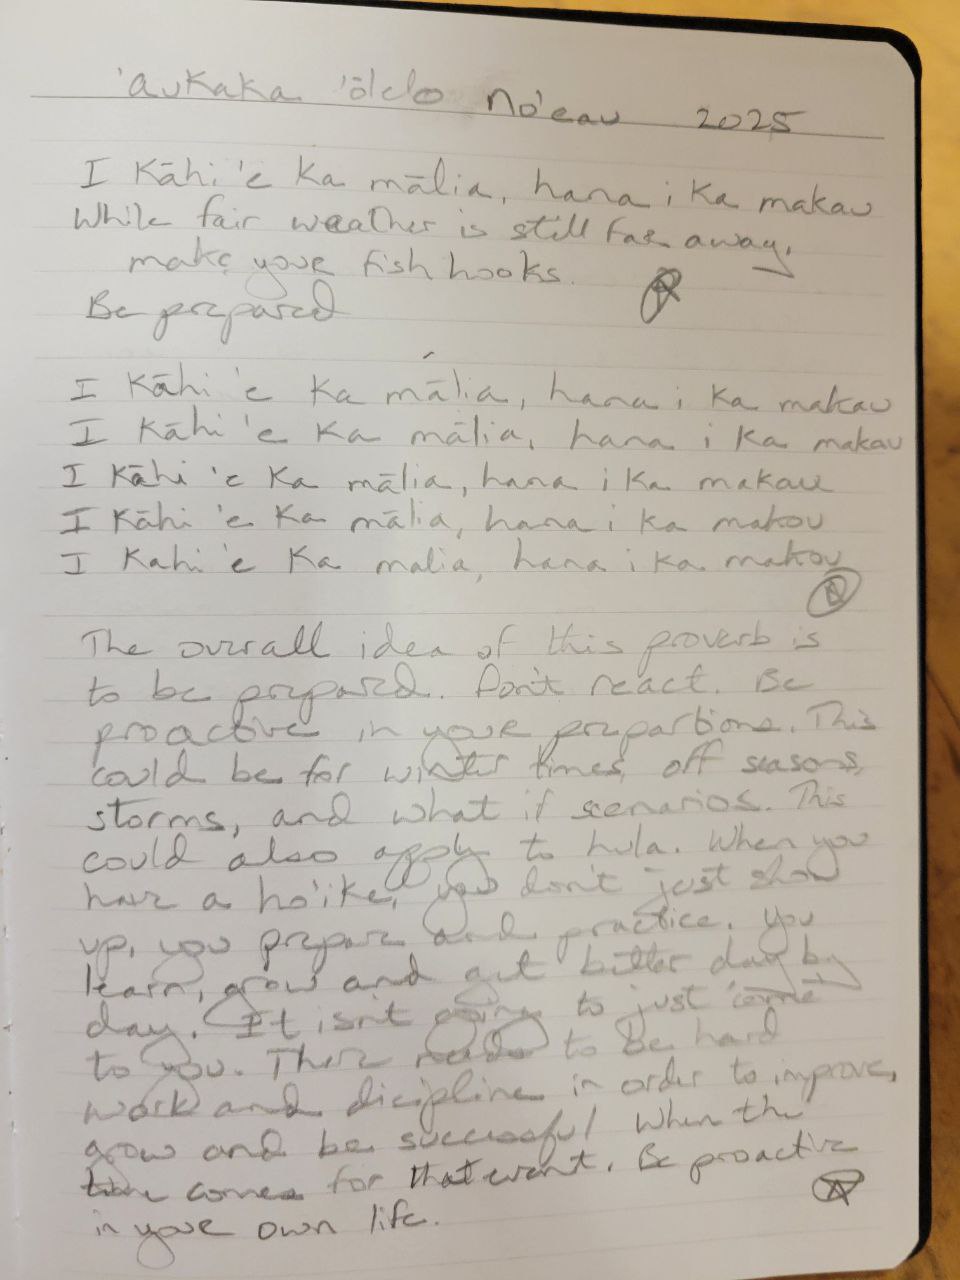 'aukaka 'ōlelo no'eau 2025
I Kāhi 'e Ka mālia, hana i Ka makau
While fair weather is still far away,
make your fish hooks.
Be prepared
I Kāhi 'e Ka mālia, hana i Ka makau
I Kāhi 'e Ka mālia, hana i Ka makau
I Kāhi 'e Ka mālia, hana i Ka makau
I Kāhi 'e Ka mālia, hana i Ka makau
I Kahi 'e Ka malia, hana i Ka makau
The overall idea of this proverb is
to be prepared. Don't react. Be
proactive in your prepartions. This
could be for winter times, off seasons,
storms, and what if scenarios. This
could also apply to hula. When you
have a ho'ike, you don't just show
up, you prepare and practice. You
learn, grow and get better day by
day. It isn't going to just "come"
to you. There needs to be hard
work and dicipline in order to improve,
grow and be successful when the
time comes for that event. Be proactive
in your own life.